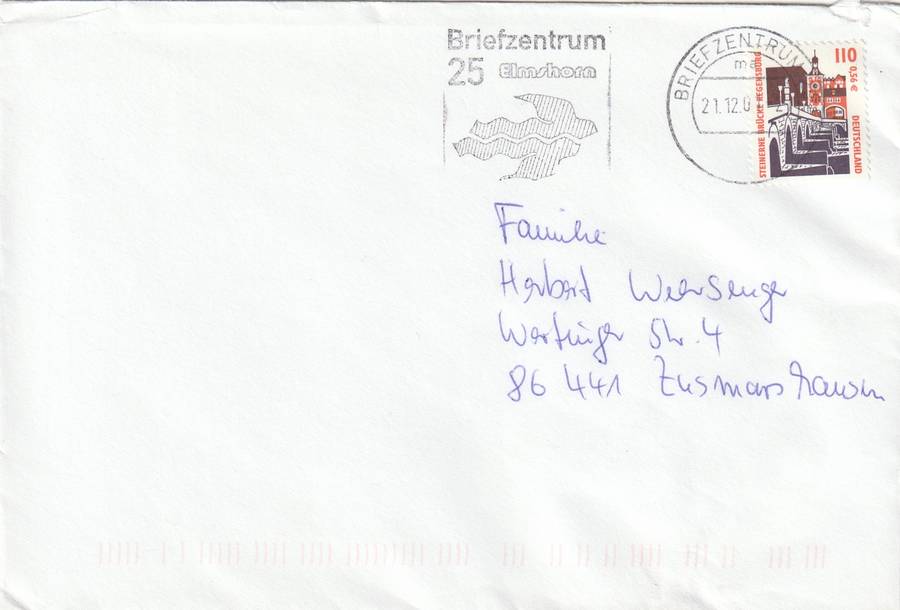 Briefzentrum
25 Elmshorn
BRIEFZENTRUM
ma
21.12.0
110
0,56 €
DEUTSCHLAND
STEINERNE BRÜCKE REGENSBURG
Familie
Herbert
Wertinger Str. 4
86441 Zusmarshausen